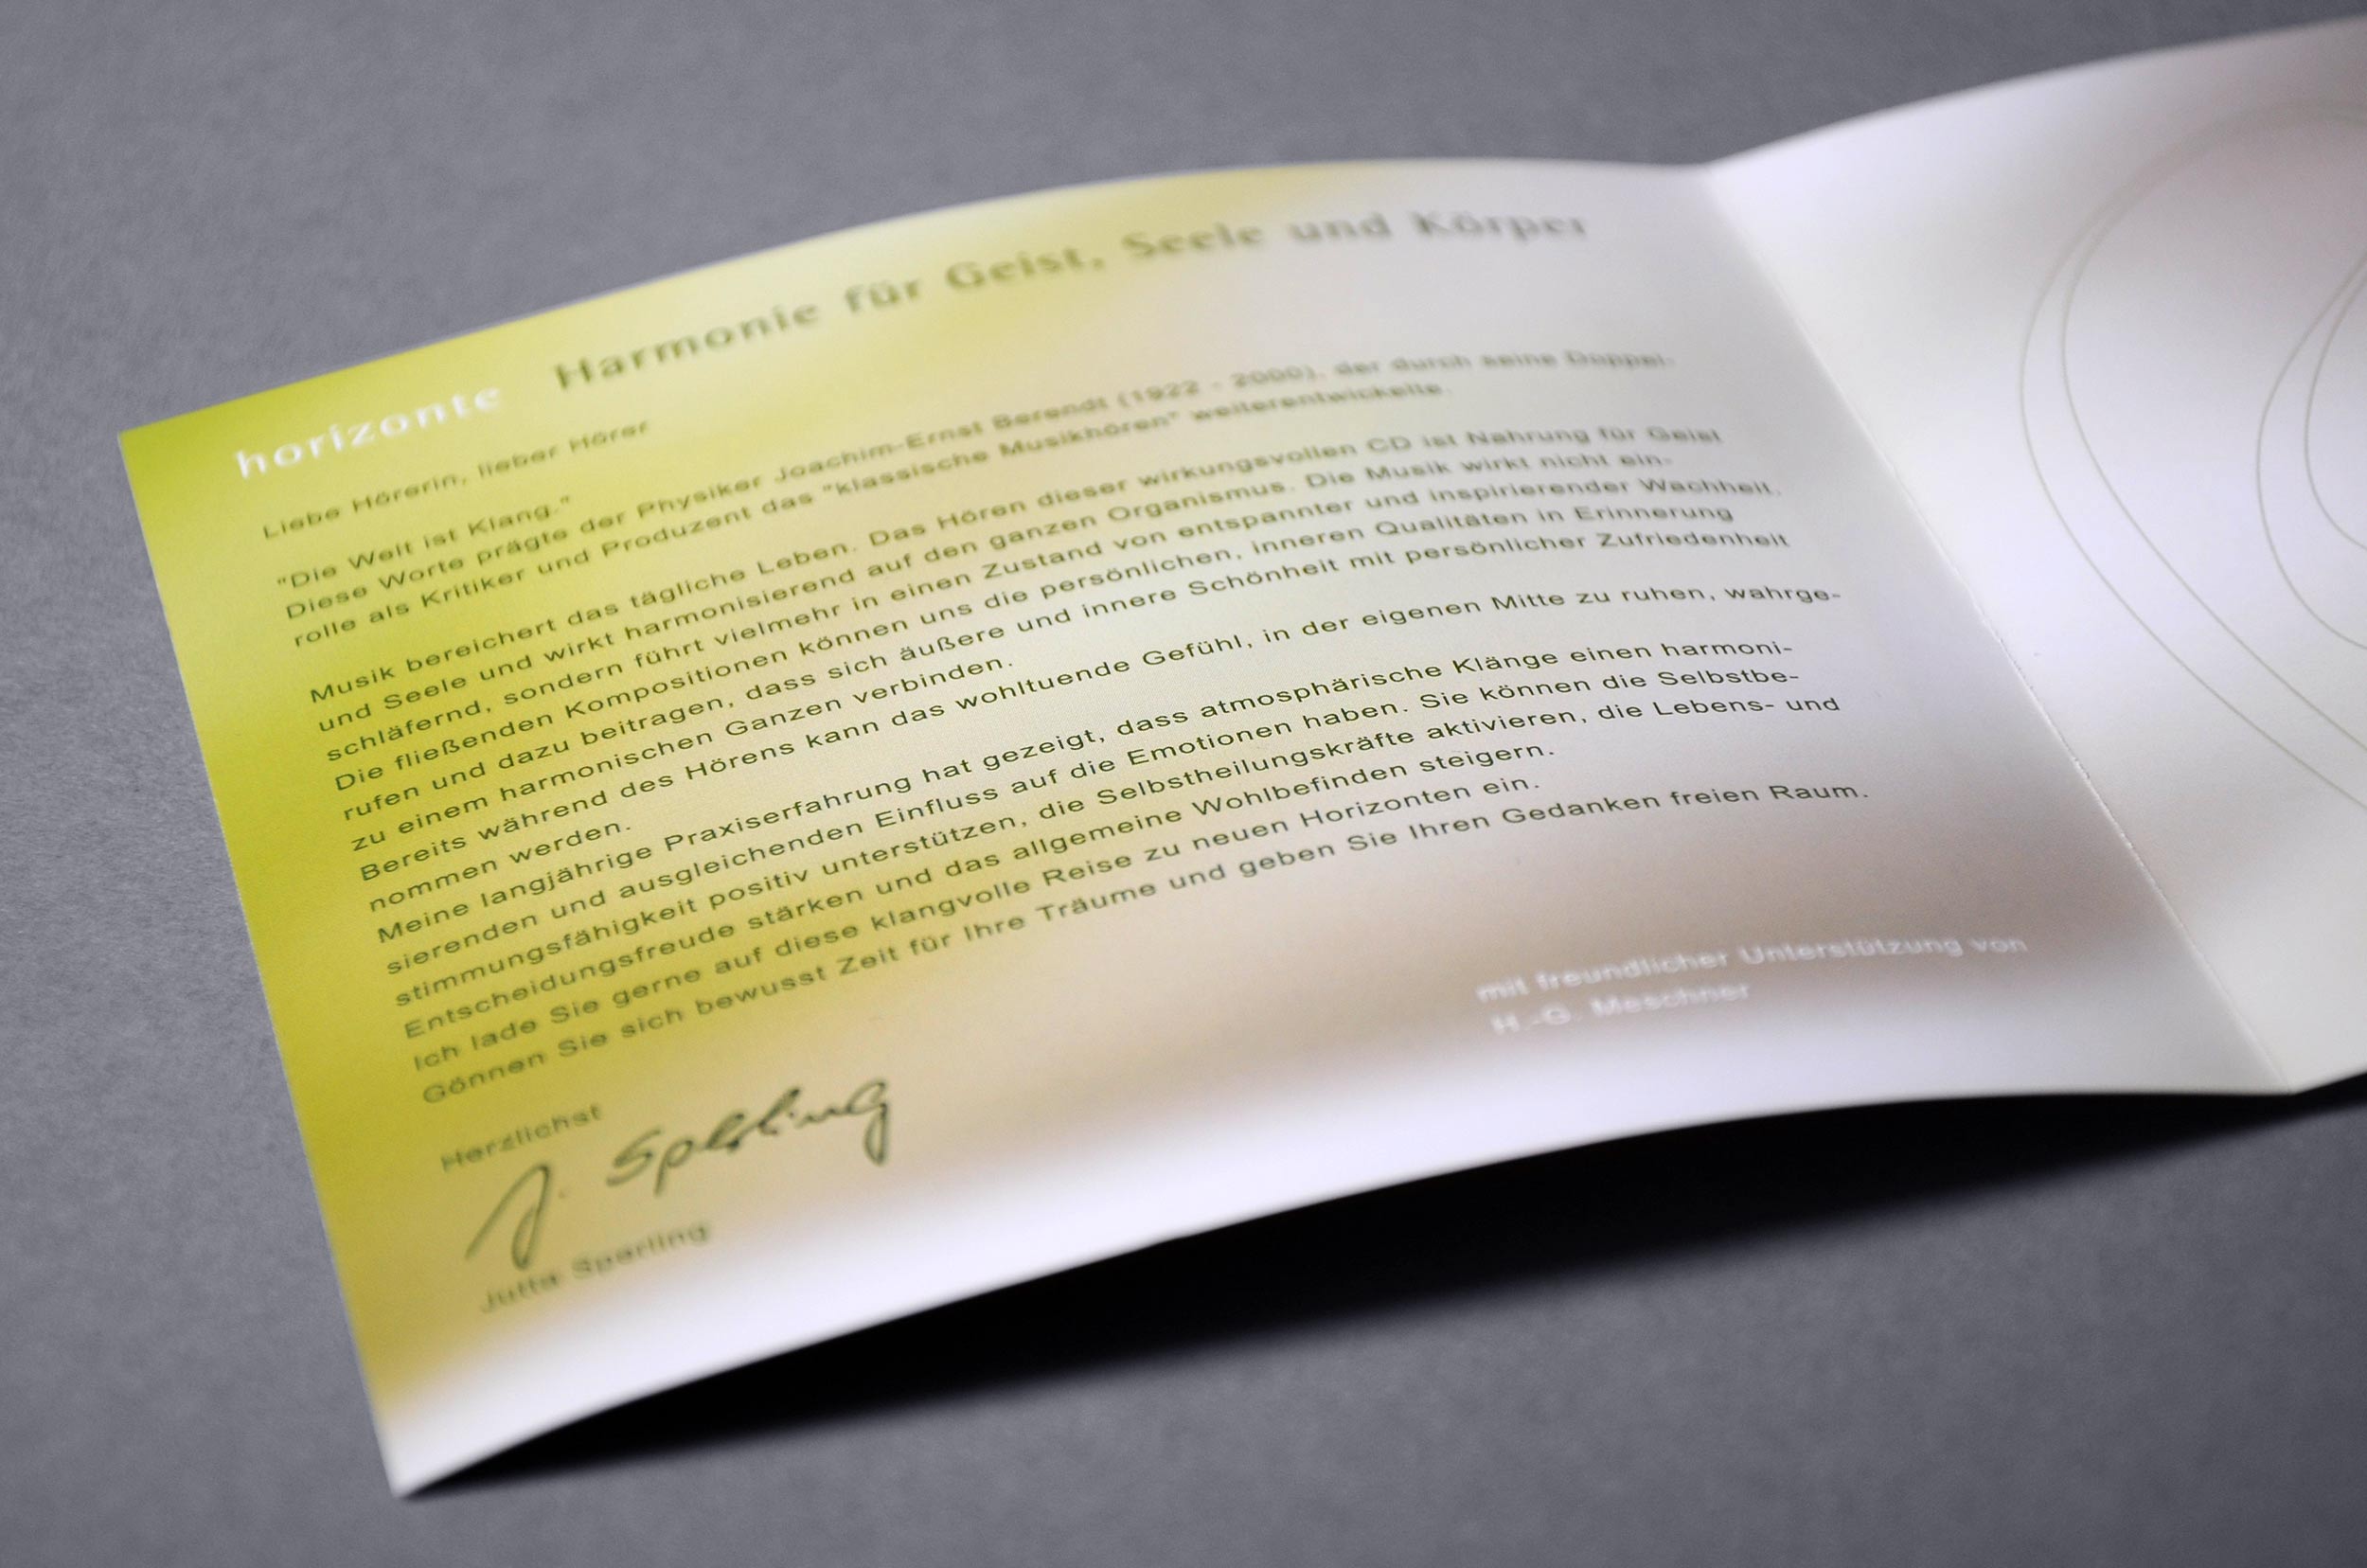 horizonte Harmonie für Geist, Seele und Körper
Liebe Hörerin, lieber Hörer
"Die Welt ist Klang."
Diese Worte prägte der Physiker Joachim-Ernst Berendt (1922 - 2000), der durch seine Doppel-
rolle als Kritiker und Produzent das "klassische Musikhören" weiterentwickelte.
Musik bereichert das tägliche Leben. Das Hören dieser wirkungsvollen CD ist Nahrung für Geist
und Seele und wirkt harmonisierend auf den ganzen Organismus. Die Musik wirkt nicht ein-
schläfernd, sondern führt vielmehr in einen Zustand von entspannter und inspirierender Wachheit.
Die fließenden Kompositionen können uns die persönlichen, inneren Qualitäten in Erinnerung
rufen und dazu beitragen, dass sich äußere und innere Schönheit mit persönlicher Zufriedenheit
zu einem harmonischen Ganzen verbinden.
Bereits während des Hörens kann das wohltuende Gefühl, in der eigenen Mitte zu ruhen, wahrge-
nommen werden.
Meine langjährige Praxiserfahrung hat gezeigt, dass atmosphärische Klänge einen harmoni-
sierenden und ausgleichenden Einfluss auf die Emotionen haben. Sie können die Selbstbe-
stimmungsfähigkeit positiv unterstützen, die Selbstheilungskräfte aktivieren, die Lebens- und
Entscheidungsfreude stärken und das allgemeine Wohlbefinden steigern.
Ich lade Sie gerne auf diese klangvolle Reise zu neuen Horizonten ein.
Gönnen Sie sich bewusst Zeit für Ihre Träume und geben Sie Ihren Gedanken freien Raum.
Herzlichst
J. Sperling
Jutta Sperling
mit freundlicher Unterstützung von
H.-G. Meschner